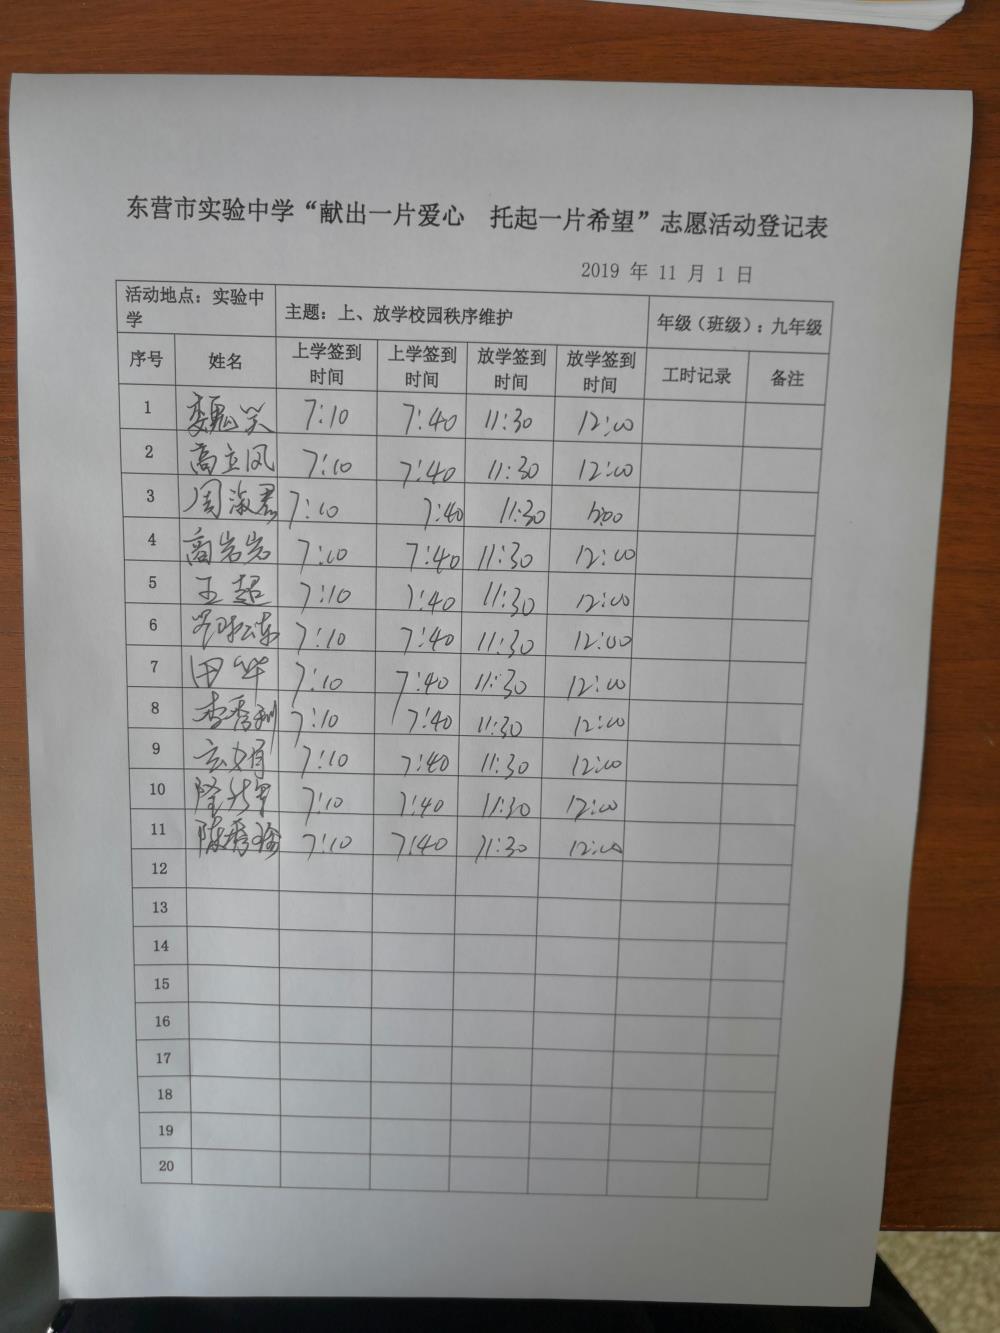 东营市实验中学“献出一片爱心 托起一片希望”志愿活动登记表
2019 年 11 月 1 日
活动地点：实验中学 主题：上、放学校园秩序维护 年级（班级）：九年级
序号 姓名 上学签到时间 上学签到时间 放学签到时间 放学签到时间 工时记录 备注
1 魏笑 7:10 7:40 11:30 12:00
2 高立凤 7:10 7:40 11:30 12:00
3 周淑君 7:10 7:40 11:30 12:00
4 商岩岩 7:10 7:40 11:30 12:00
5 王超 7:10 7:40 11:30 12:00
6 7:10 7:40 11:30 12:00
7 田华 7:10 7:40 11:30 12:00
8 李秀利 7:10 7:40 11:30 12:00
9 7:10 7:40 11:30 12:00
10 7:10 7:40 11:30 12:00
11 陈秀瑜 7:10 7:40 11:30 12:00
12
13
14
15
16
17
18
19
20